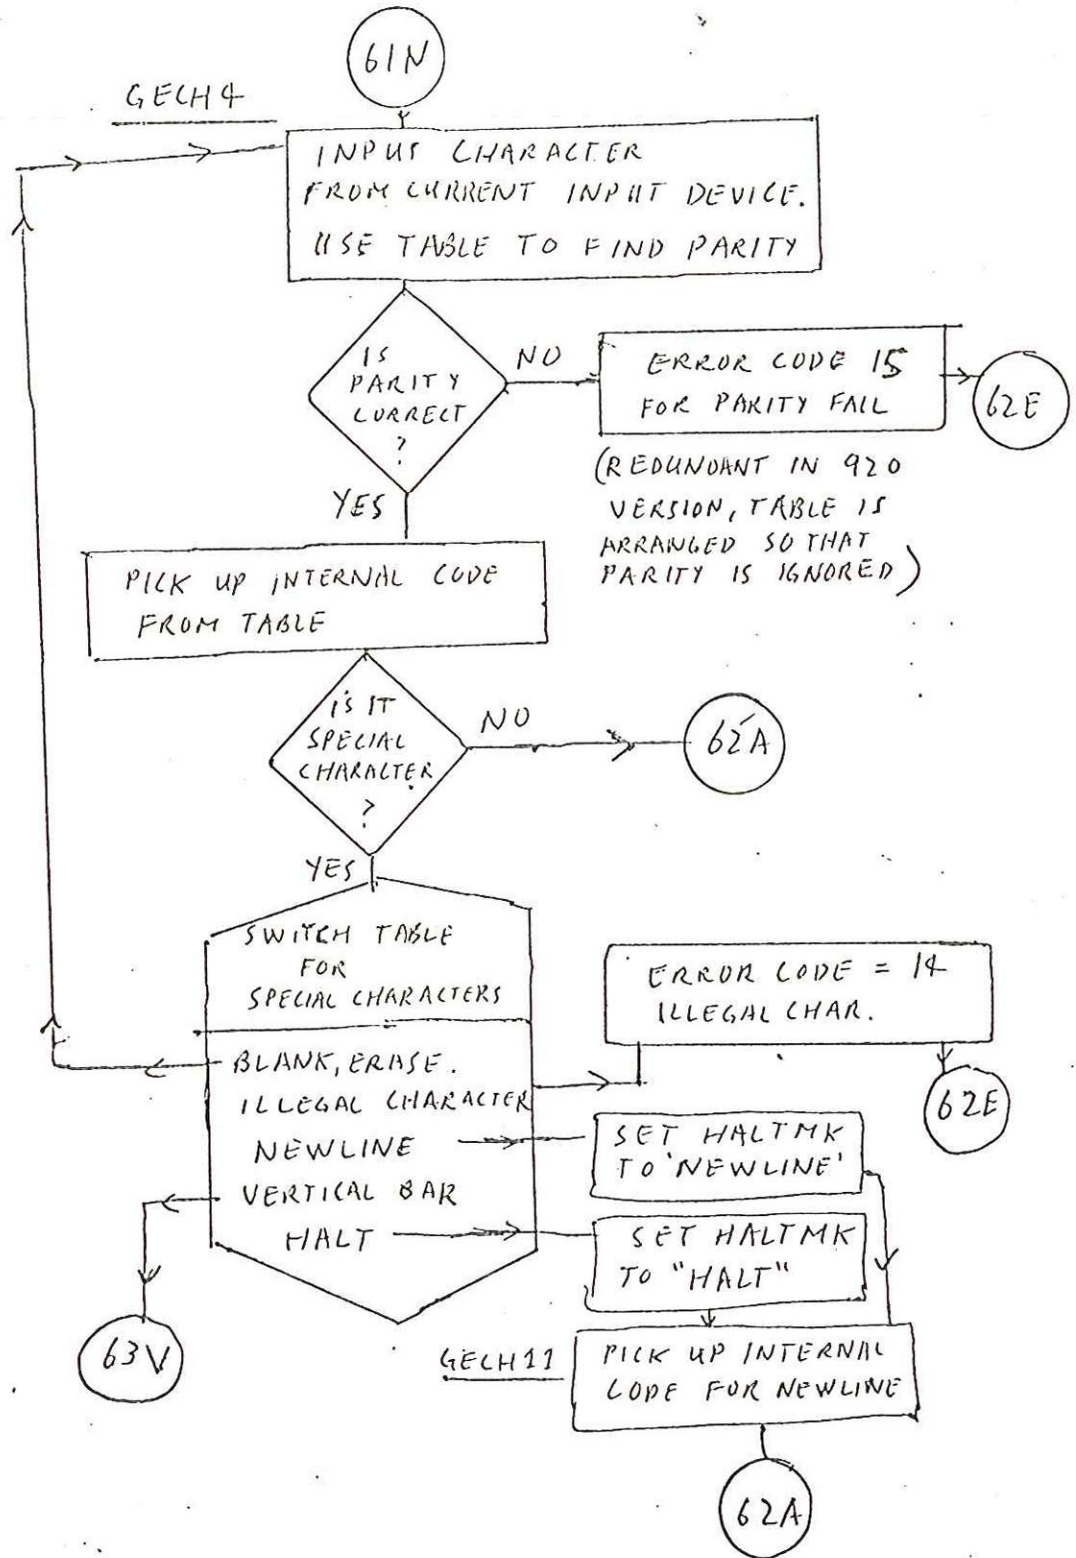 61N
GECH4
INPUT CHARACTER
FROM CURRENT INPUT DEVICE.
USE TABLE TO FIND PARITY
IS
PARITY
CORRECT
?
NO
ERROR CODE 15
FOR PARITY FAIL
62E
(REDUNDANT IN 920
VERSION, TABLE IS
ARRANGED SO THAT
PARITY IS IGNORED)
YES
PICK UP INTERNAL CODE
FROM TABLE
IS IT
SPECIAL
CHARACTER
?
NO
62A
YES
SWITCH TABLE
FOR
SPECIAL CHARACTERS
BLANK, ERASE.
ILLEGAL CHARACTER
NEWLINE
VERTICAL BAR
HALT
ERROR CODE = 14
ILLEGAL CHAR.
62E
SET HALTMK
TO 'NEWLINE'
SET HALTMK
TO "HALT"
63V
GECH11
PICK UP INTERNAL
CODE FOR NEWLINE
62A